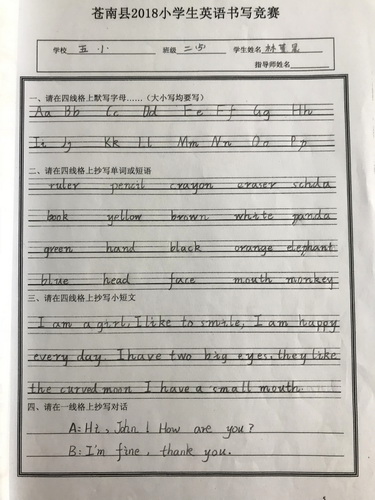 苍南县2018小学生英语书写竞赛
学校 五小 班级 二(5) 学生姓名 林
指导师姓名
一、请在四线格上默写字母……(大小写均要写)
Aa Bb Cc Dd Ee Ff Gg Hh
Ii Jj Kk Ll Mm Nn Oo Pp
二、请在四线格上抄写单词或短语
ruler pencil crayon eraser schola
book yellow brown white panda
green hand black orange elephant
blue head face mouth monkey
三、请在四线格上抄写小短文
I am a girl, I like to smile, I am happy
every day. I have two big eyes. they like
the curved moon I have a small mouth
四、请在一线格上抄写对话
A: Hi, John! How are you?
B: I'm fine, thank you.
1